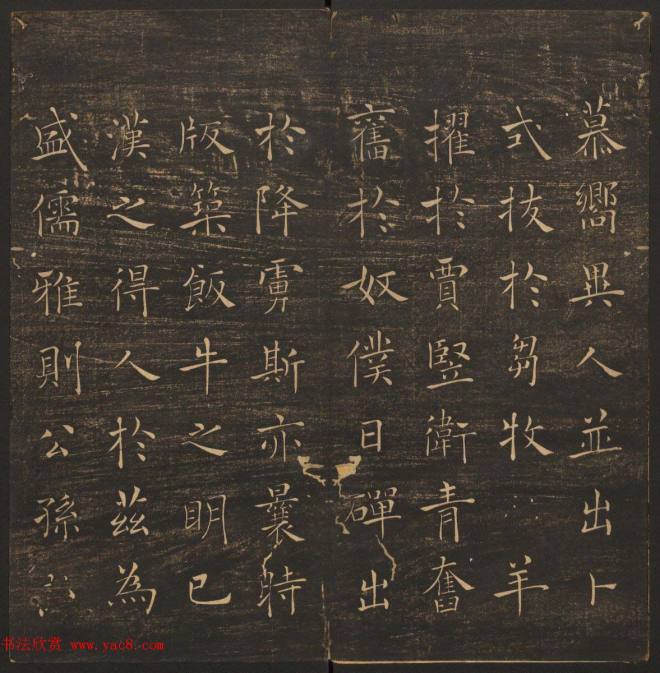 慕嚮異人並出卜
式拔於芻牧羊
擢於賈豎衛青奮
舊於奴僕日磾出
於降虜斯亦曩時
版築飯牛之明已
漢之得人於茲為
盛儒雅則公孫
书法欣赏 www.yac8.com